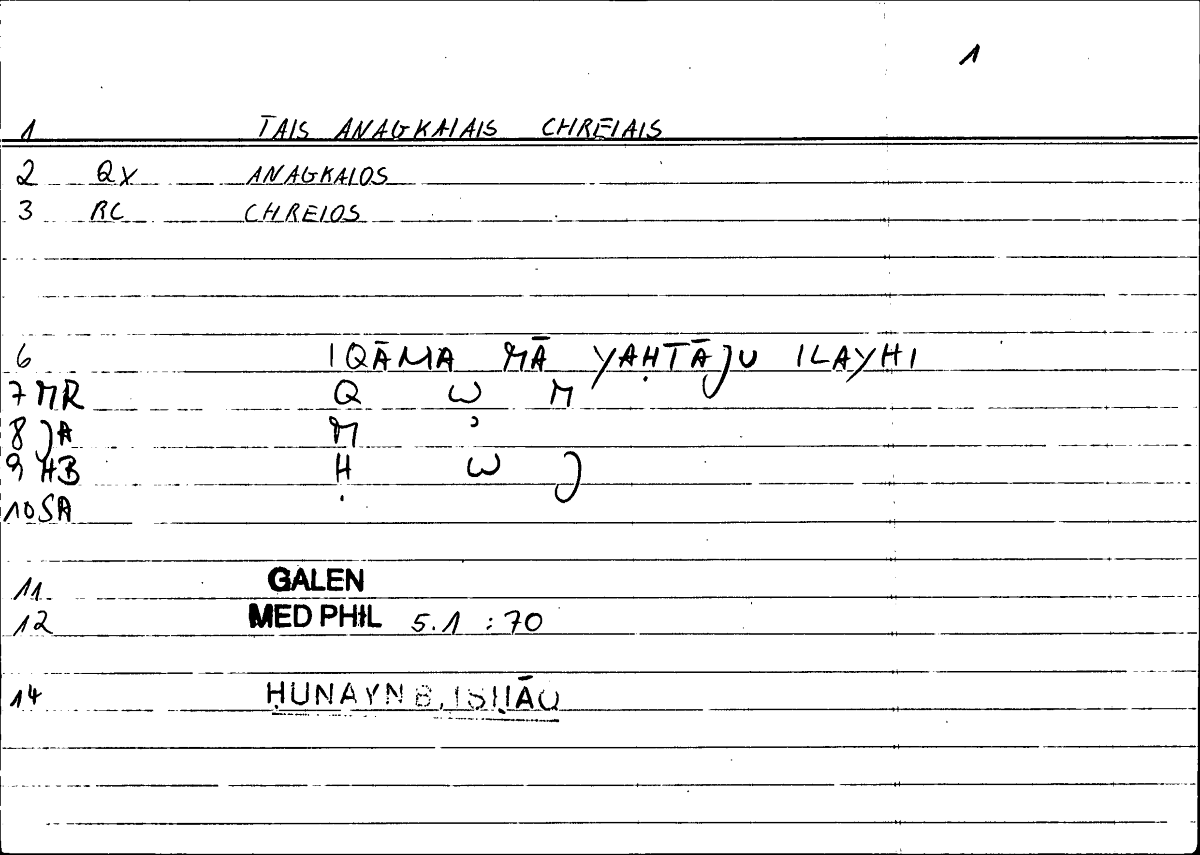 1
1 TAIS ANAGKAIAIS CHREIAIS
2 QX ANAGKAIOS
3 RC CHREIOS
6 IQĀMA MĀ YAḤTĀJU ILAYHI
7 MR Q W M
8 JA M ʾ
9 HB Ḥ W J
10 SA
11 GALEN
12 MED PHIL 5.1 : 70
14 ḤUNAYN B. ISḤĀQ